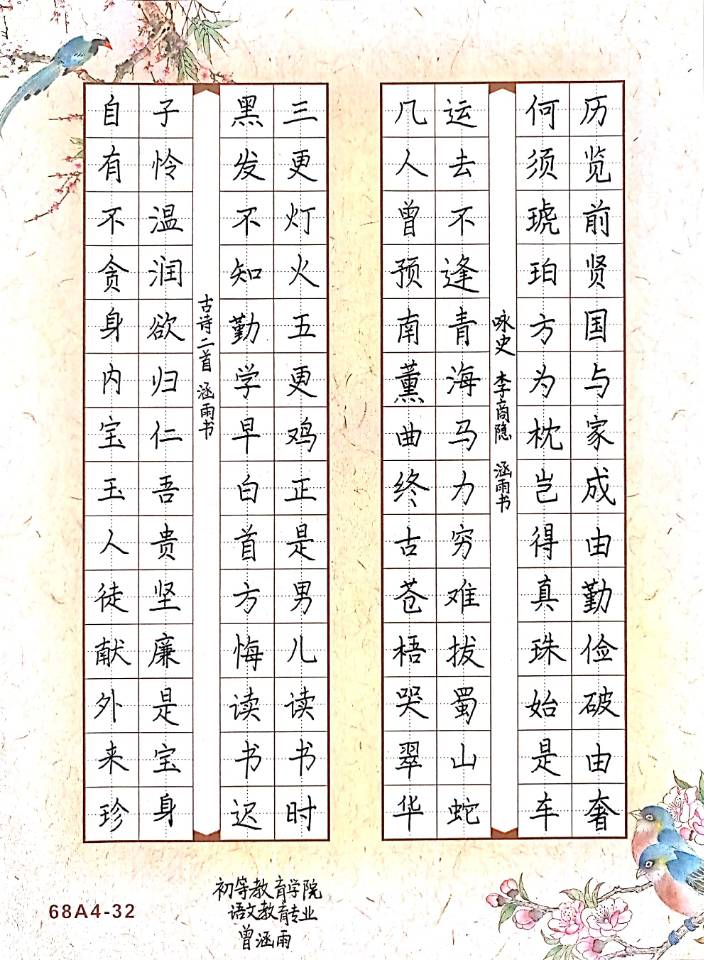 历览前贤国与家成由勤俭破由奢
何须琥珀方为枕岂得真珠始是车
咏史 李商隐 涵雨书
运去不逢青海马力穷难拔蜀山蛇
几人曾预南薰曲终古苍梧哭翠华
三更灯火五更鸡正是男儿读书时
黑发不知勤学早白首方悔读书迟
古诗二首 涵雨书
子怜温润欲归仁吾贵坚廉是宝身
自有不贪身内宝玉人徒献外来珍
初等教育学院
语文教育专业
曾涵雨
68A4-32